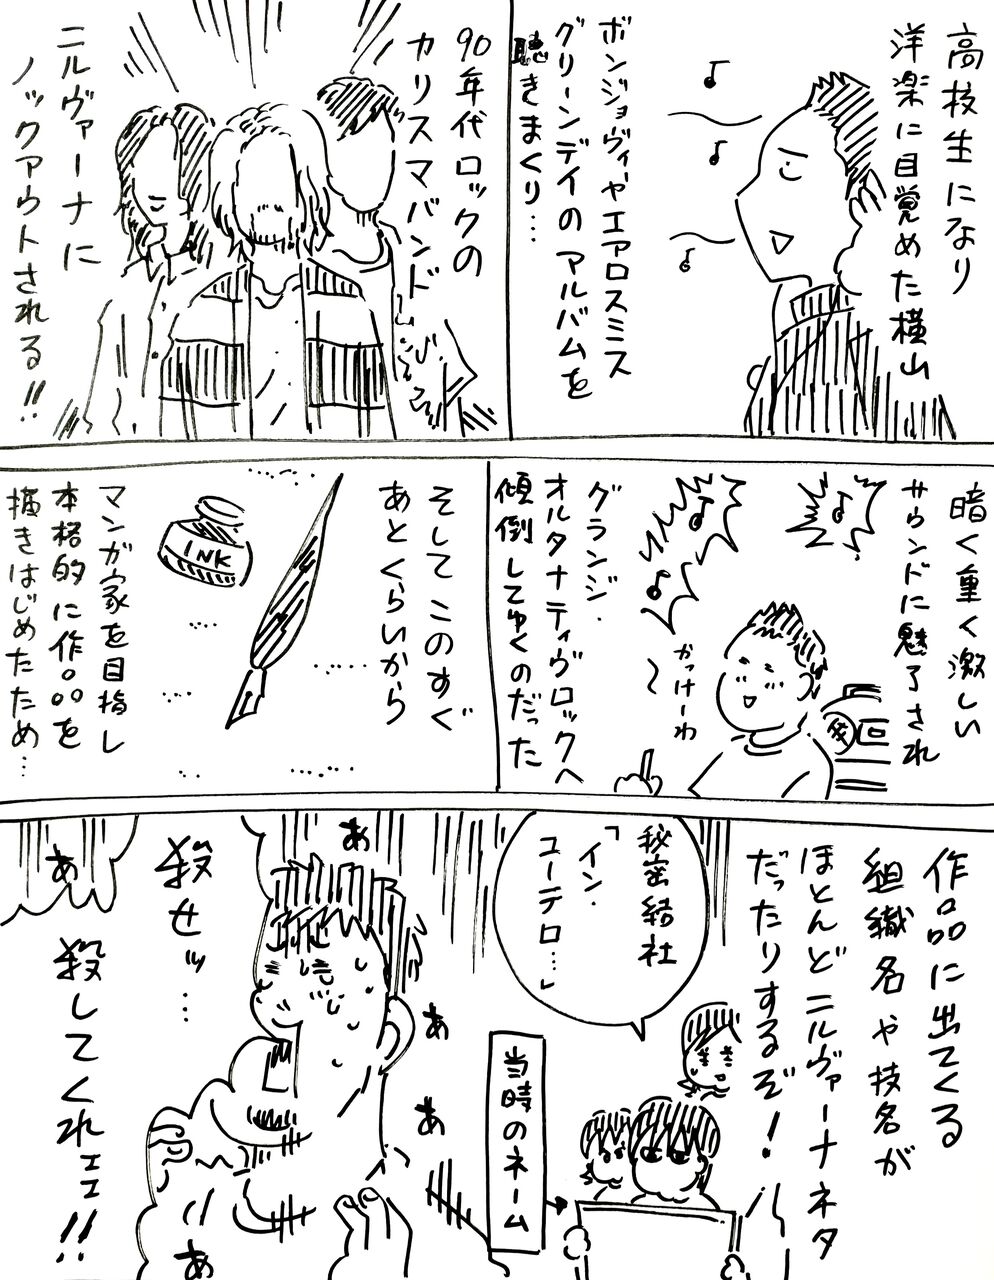 高校生になり
洋楽に目覚めた横山
ボンジョヴィやエアロスミス
グリーンデイのアルバムを
聴きまくり…
90年代ロックの
カリスマバンド
ニルヴァーナに
ノックアウトされる!!
暗く重く激しい
サウンドに魅了され
かっけーわ
〜
グランジ・
オルタナティヴロックへ
傾倒してゆくのだった
そしてこのすぐ
あとくらいから
INK
マンガ家を目指し
本格的に作品を
描きはじめたため…
作品に出てくる
組織名や技名が
ほとんどニルヴァーナネタ
だったりするぞ!
秘密結社
「イン・
ユーテロ…」
当時のネーム
あ
あ
あ
あ
あ
殺せッ…
殺してくれェェ!!